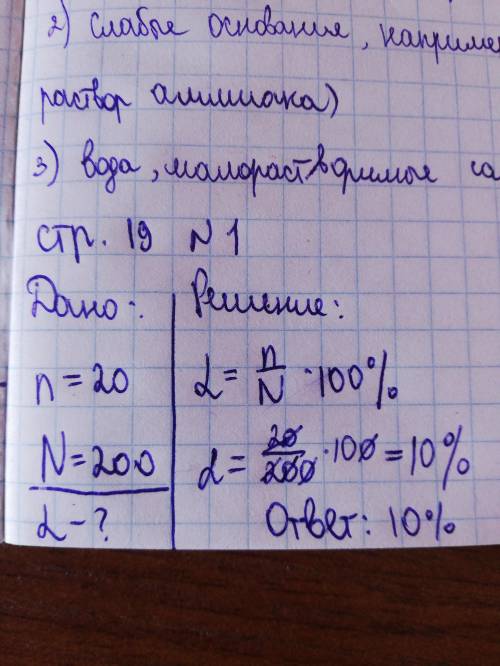 2) слабые основания, например
раствор аммиака)
3) вода, малорастворимые
стр. 19 №1
Дано: Решение:
n = 20 α = n/N · 100%
N = 200 α = 20/200 · 100 = 10%
α - ? Ответ: 10%